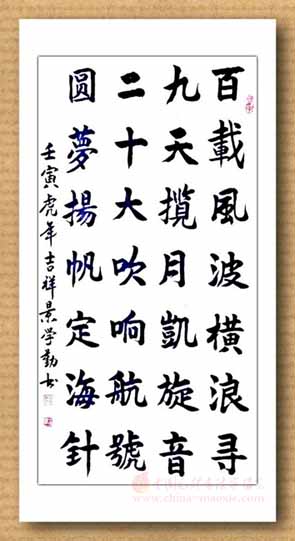 百載風波橫浪寻
九天揽月凱旋音
二十大吹响航號
圆夢揚帆定海针
壬寅虎年吉祥景学勤书
www.china-maoxie.com